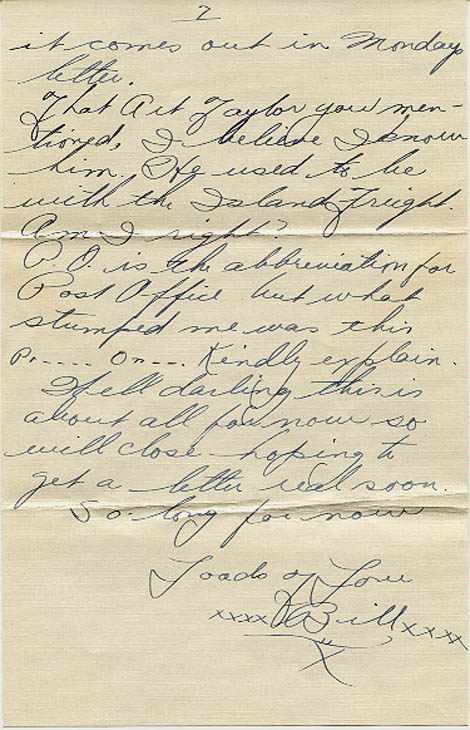 7
it comes out in Mondays
letter.
That Art Taylor you men-
tioned, I believe I know
him. He used to be
with the Island Freight.
Am I right?
P.O. is the abbreviation for
Post Office but what
stumped me was this
Pr----- On---. Kindly explain.
Well darling this is
about all for now so
will close hoping to
get a letter real soon.
So-long for now
Loads of Love
xxxx Bill xxxx
X